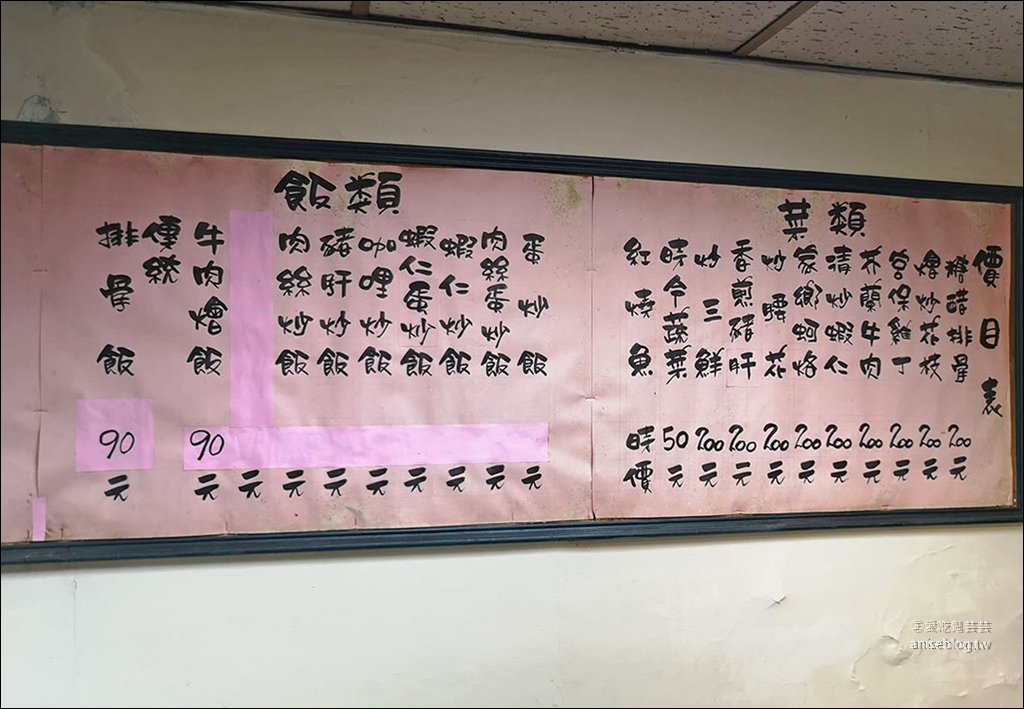 價目表
菜類
糖醋排骨 200元
燴炒花枝 200元
宮保雞丁 200元
芥蘭牛肉 200元
清炒蝦仁 200元
蒙鄉蚵烙 200元
炒腰花 200元
香煎豬肝 200元
炒三鮮 200元
時令蔬菜 50元
紅燒魚 時價
飯類
蛋炒飯 元
肉絲蛋炒飯 元
蝦仁炒飯 元
蝦仁蛋炒飯 元
咖哩炒飯 元
豬肝炒飯 元
肉絲炒飯 元
元
牛肉燴飯 90元
傳統排骨飯 90元
愛吃鬼芸芸
aniseblog.tw